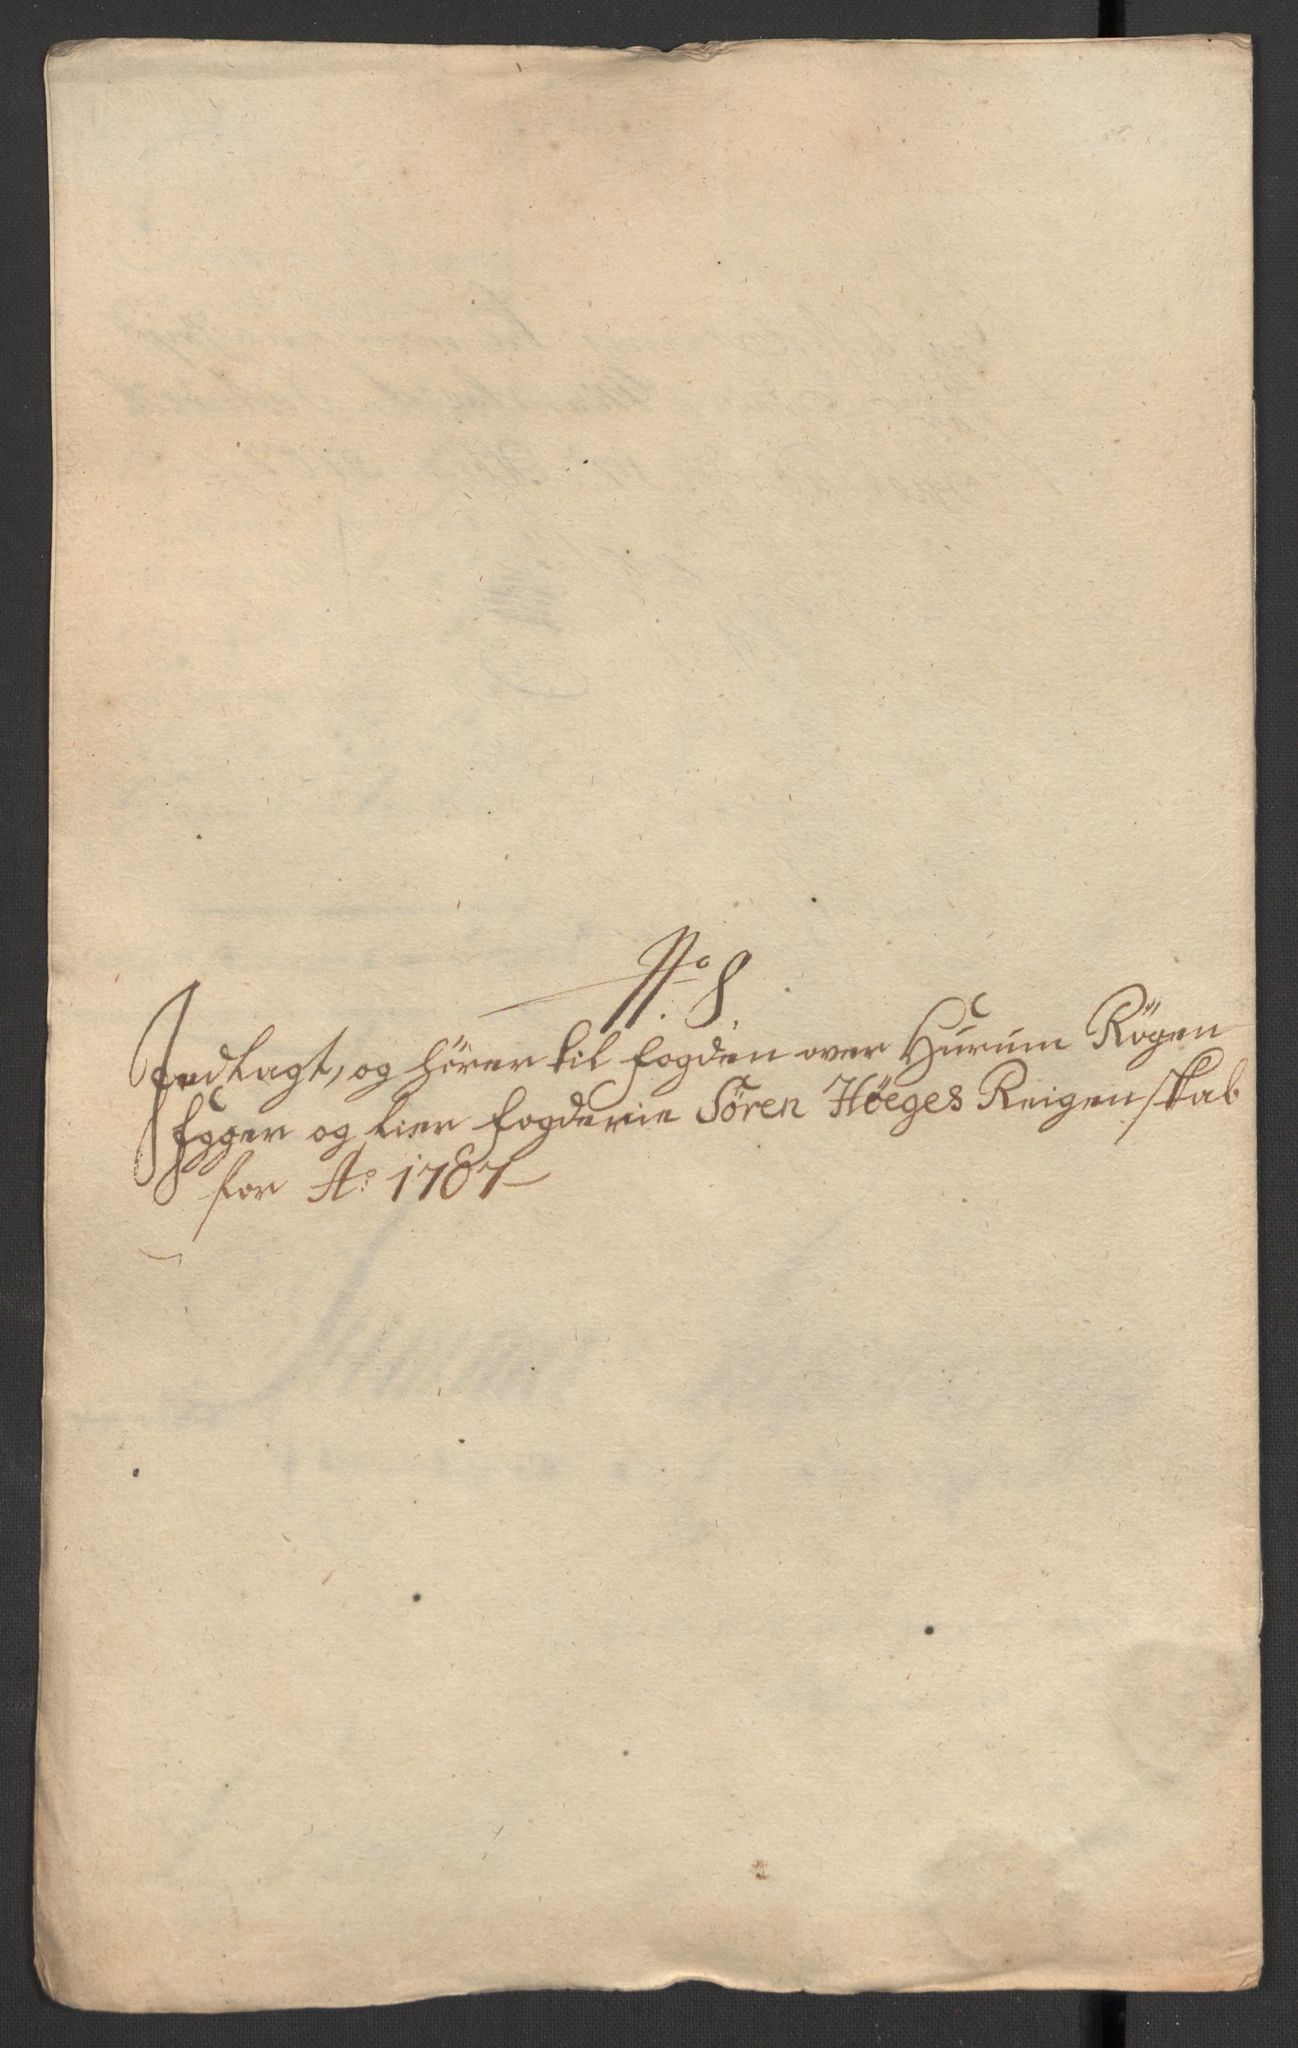 No 8.
Indlagt, og hörer til fogden over Hurum Rögen
Egger og Lier fogderie Sören Höeges Reigenskab
for Ao 1707